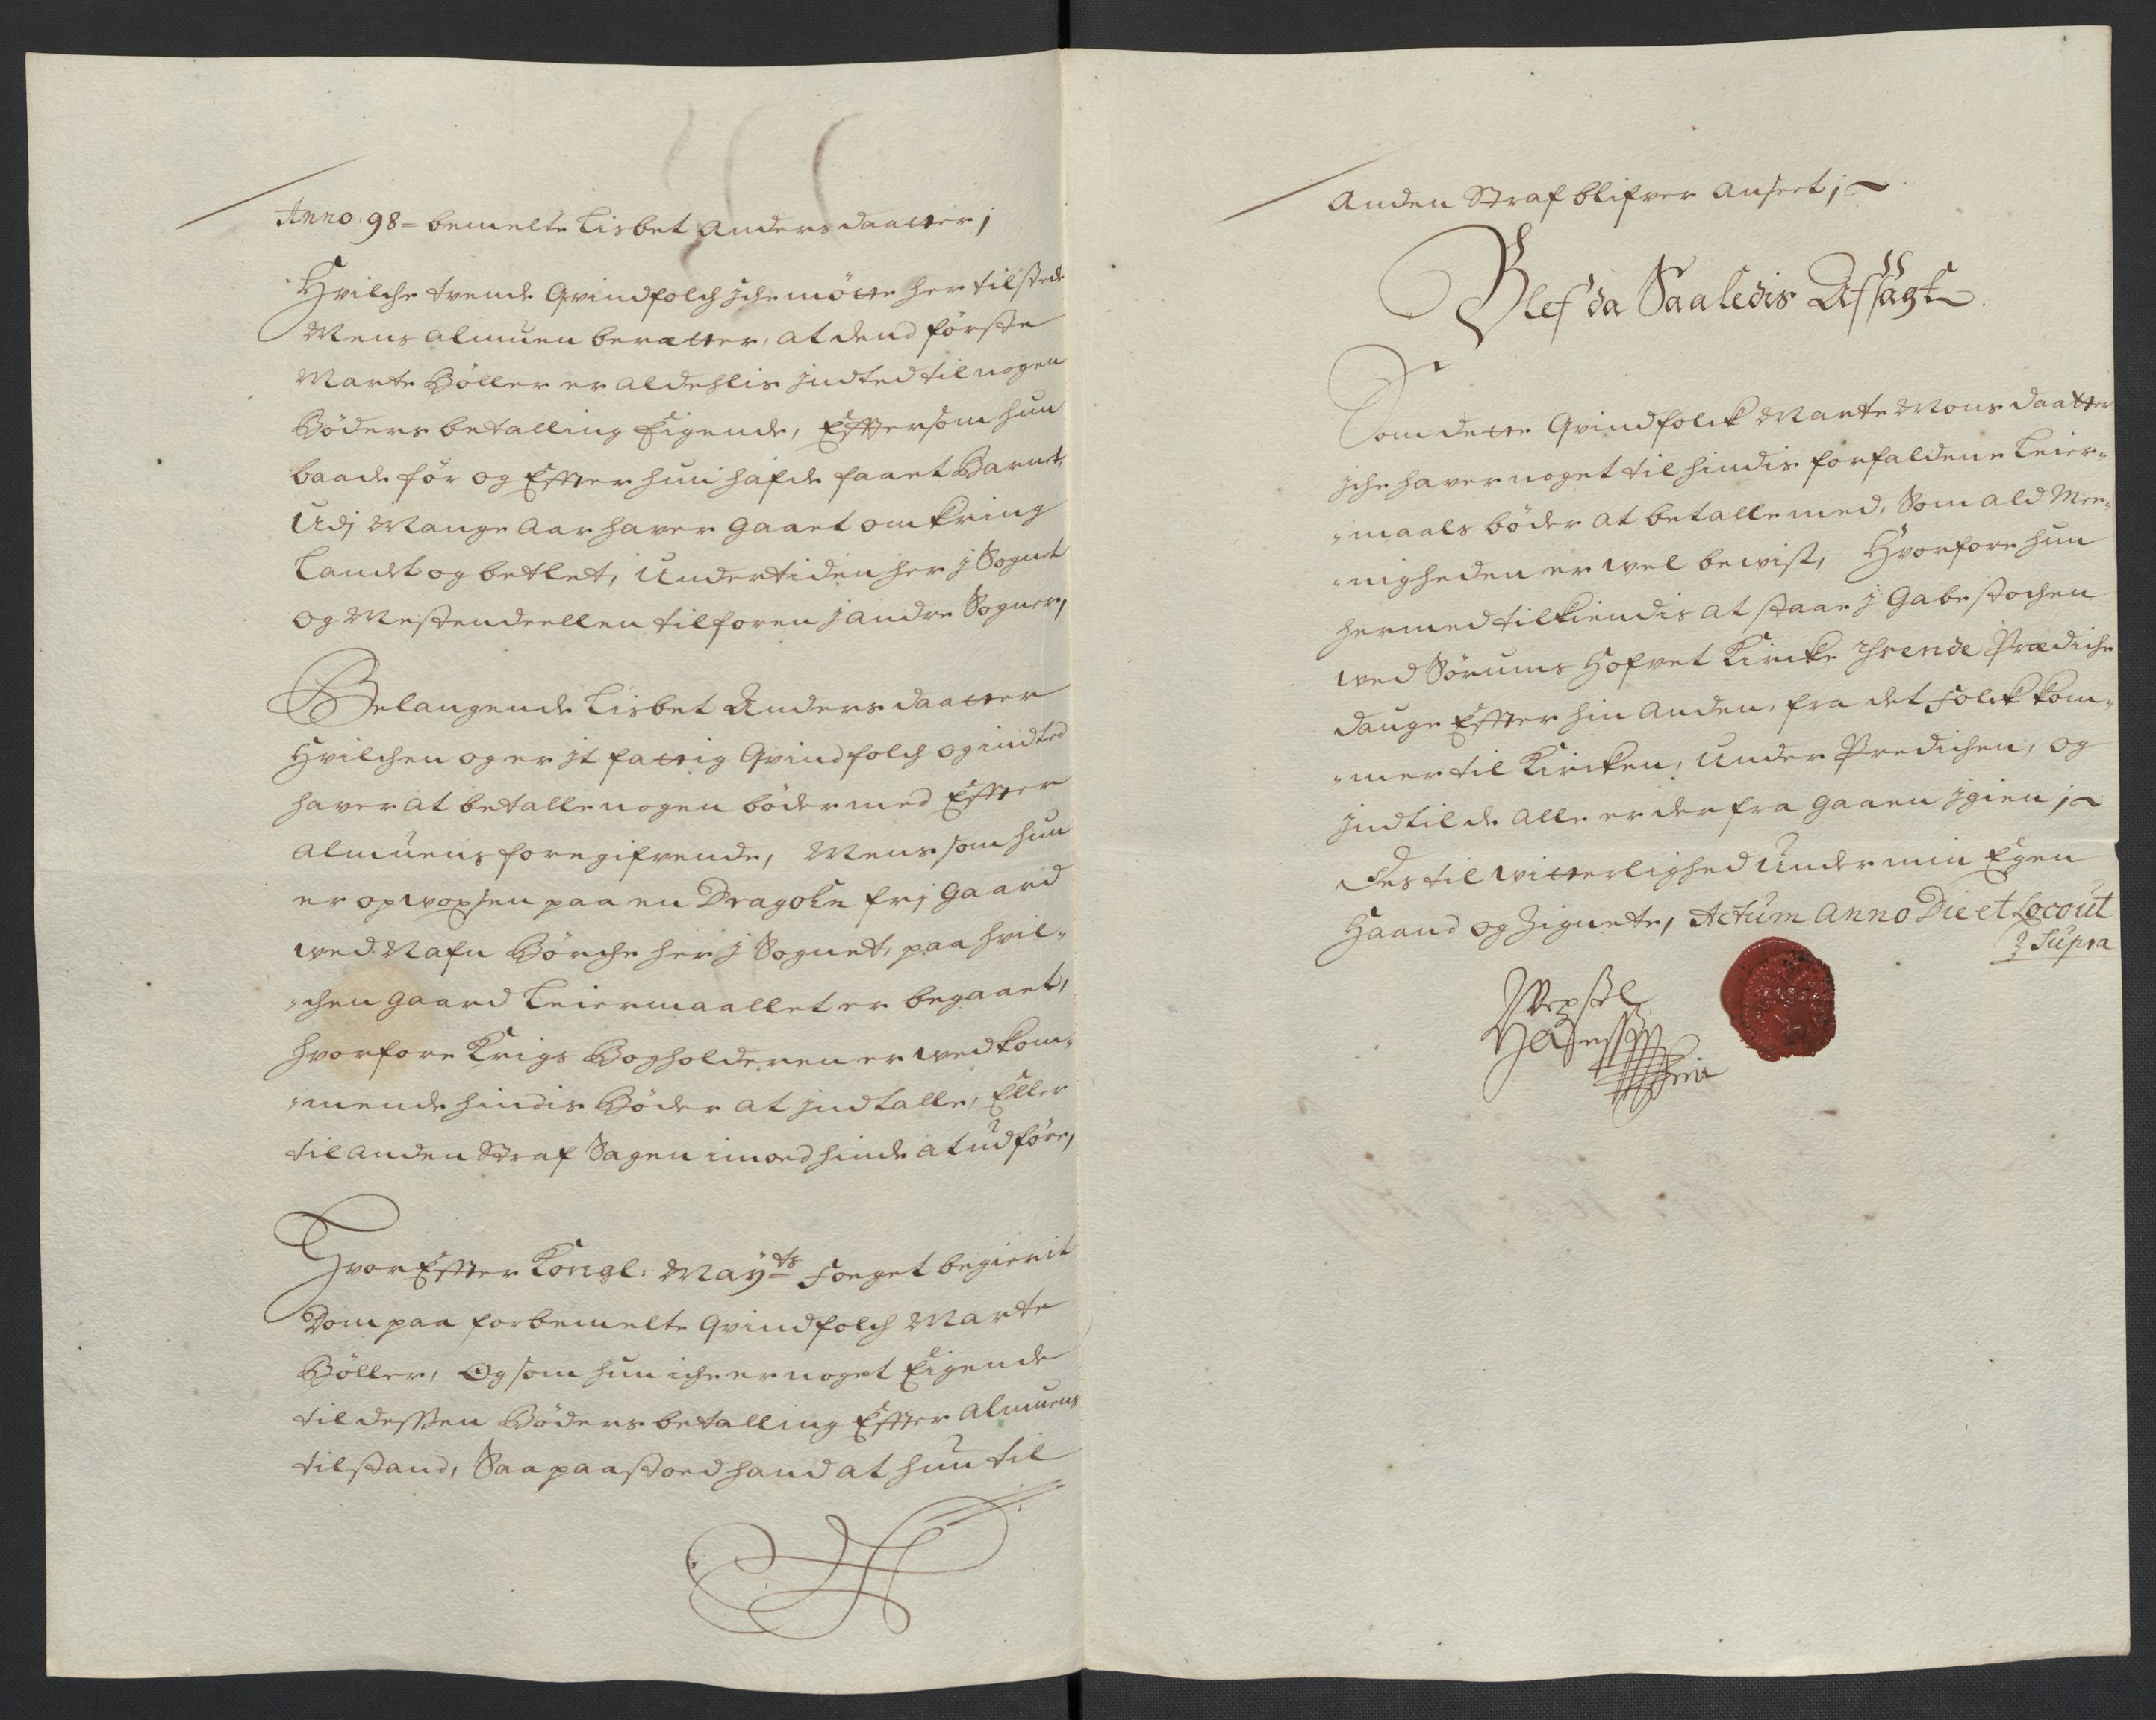 Anno: 98 = bemelte Lisbet Anders daatter;
Hvilche tvende Qvindfolch iche møtte her tilstede
Mens almuen beretter, at dend første
Marte Bøller er aldehlis indted til nogen
Bøders betalling Eigende, Efftersom hun
baade før og Effter hun hafde faaet Barnet,
Udj Mange Aar haver gaaet omkring
Landet og betlet, Undertiden her j Sognet
og Mestendeellen tilforen j andre Sogner,
Belangende Lisbet Anders daatter
Hvilchen og er it fattig Qvindfolch og indted
haver at betalle nogen bøder med Effter
almuens foregifvende, Mens som hun
er opvoxsen paa en Dragoen frj gaard
ved Nafn Børche her j Sognet, paa hvil-
chen gaard Leiermaallet er begaaet,
hvorfore Krigs Bogholderen er vedkom-
mende hindis Bøder at indtalle, Eller
til anden Straf Sagen imoed hinde at udføre,
Hvor Effter Kongl: May:ts Foeget begierit
Dom paa forbemelte Qvindfolch Marte
Bøller, Og som hun iche er noget Eigende
til dessen Bøders betalling Effter almuens
tilstand, Saa paastoed hand at hun til
anden Straf blifver anseet;
Blef da Saaledis Afsagt
Som dette Qvindfolck Marte Mons daatter
iche haver noget til hindis forfaldene Leier-
maals bøder at betalle med, Som ald Men-
nigheden er vel bevist, Hvorfore hun
hermed tilkiendis at staae j Gabestochen
ved Sørums Hofvet Kircke Thrende Prædiche
dauge Effter hin anden, fra det Folck kom-
mer til Kircken, Under Predichen, og
indtil de alle er derfra gaaen igien;
Des til vitterlighed Under min Egen
Haand og Zignete, Actum Anno Die et Loco ut
Supra